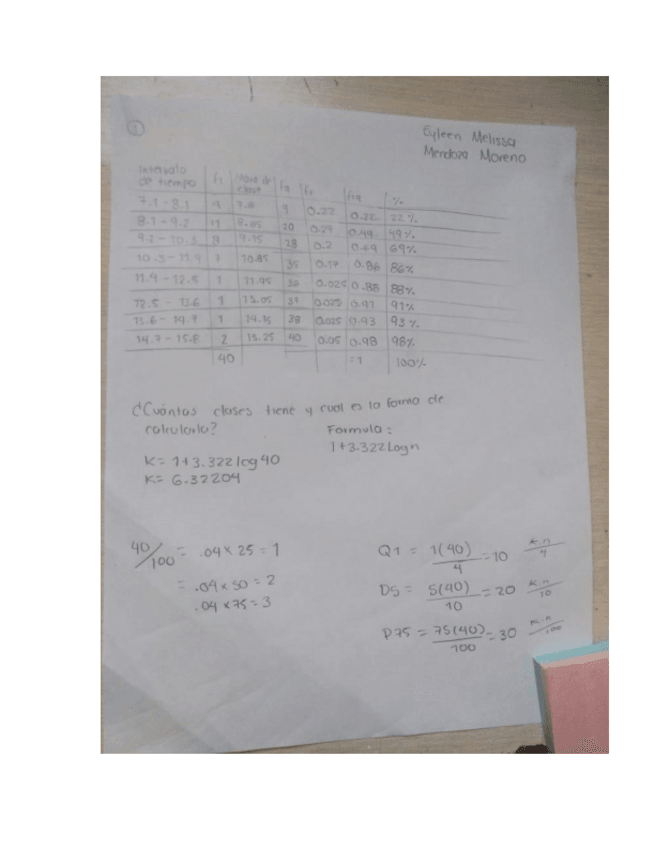 1
Eyleen Melissa
Mendoza Moreno
Intervalo de tiempo fi Marca de clase Fa fr fra %
7.1 - 8.1 9 7.6 9 0.22 0.22 22%
8.1 - 9.2 11 8.65 20 0.27 0.49 49%
9.2 - 10.3 8 28 0.2 0.69 69%
10.3 - 11.4 7 10.85 35 0.17 0.86 86%
11.4 - 12.5 1 11.95 36 0.025 0.88 88%
12.5 - 13.6 1 13.05 37 0.025 0.91 91%
13.6 - 14.7 1 14.15 38 0.025 0.93 93%
14.7 - 15.8 2 15.25 40 0.05 0.98 98%
40 =1 100%
¿Cuántas clases tiene y cual es la forma de
calcularla? Formula:
1+3.322Logn
K= 1+3.322log40
K= 6.32204
40/100 = .04 x 25 = 1
= .04 x 50 = 2
.04 x 75 = 3
Q1 = 1(40)/4 = 10 k.n/4
D5 = 5(40)/10 = 20 k.n/10
P75 = 75(40)/100 = 30 k.n/100